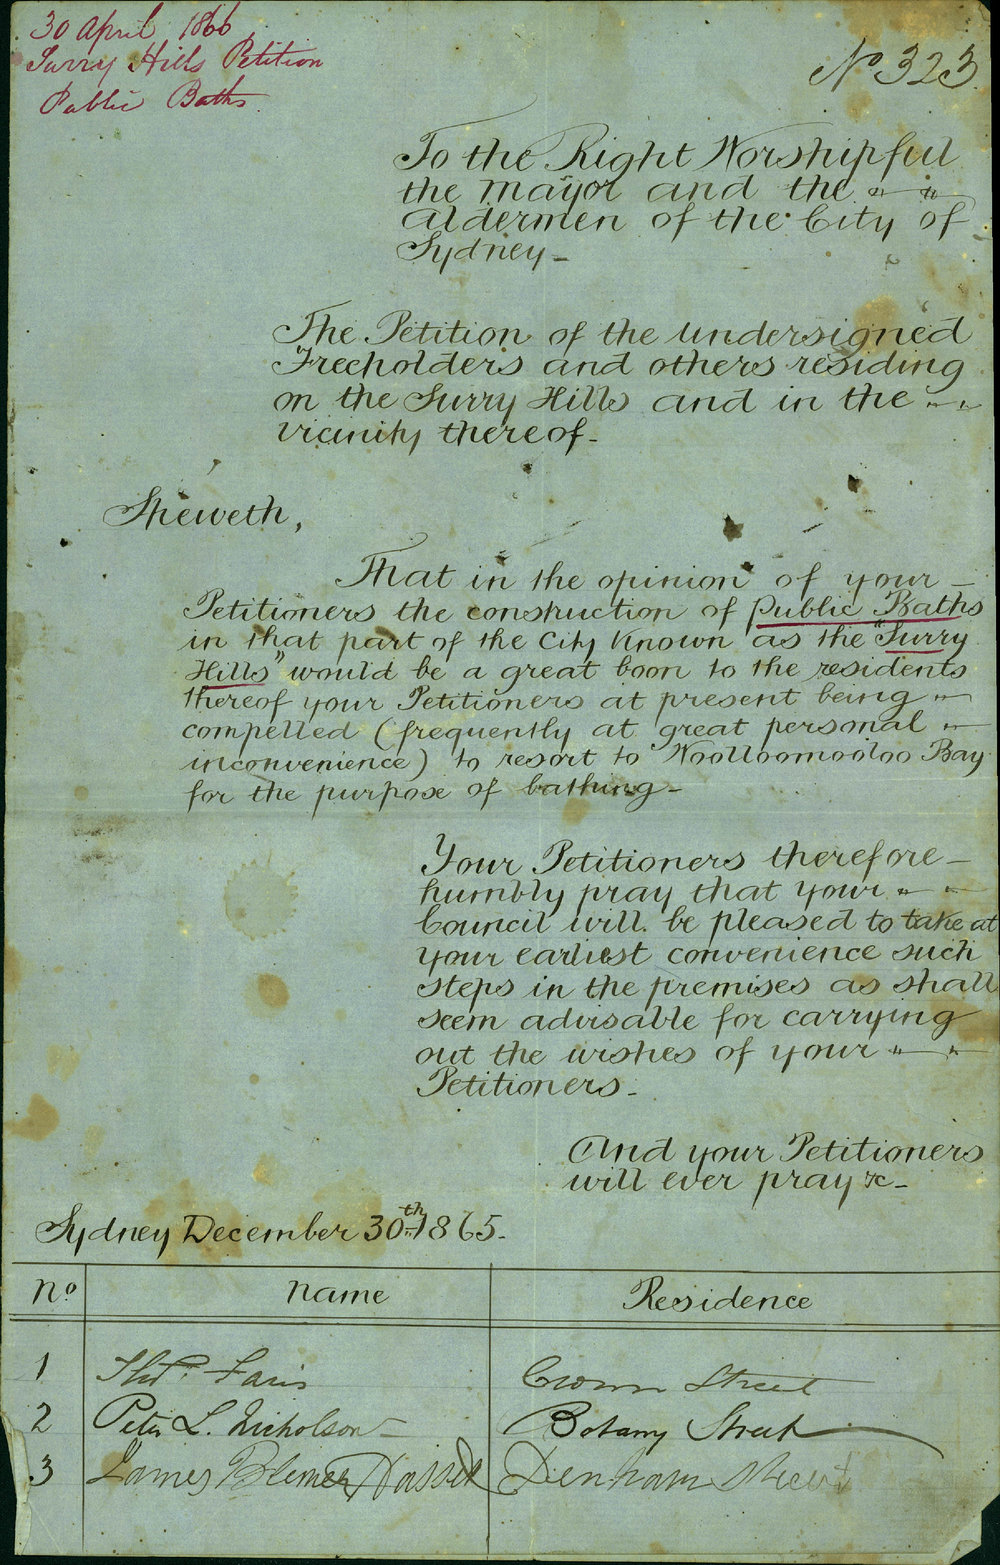 30 April 1866
Surry Hills Petition
Public Baths
No 323.
To the Right Worshipful
the Mayor and the
Aldermen of the City of
Sydney_
The Petition of the undersigned
Freeholders and others residing
on the Surry Hills and in the
vicinity thereof_
Sheweth,
That in the opinion of your _
Petitioners the construction of Public Baths
in that part of the City Known as the "Surry
Hills" would be a great boon to the residents
thereof your Petitioners at present being
compelled (frequently at great personal
inconvenience) to resort to Woolloomooloo Bay
for the purpose of bathing_
Your Petitioners therefore _
humbly pray that your
Council will be pleased to take at
your earliest convenience such
steps in the premises as shall
seem advisable for carrying
out the wishes of your
Petitioners_
And your Petitioners
will ever pray &c_
Sydney December 30th 1865.
No Name Residence
1 Faris Crown Street
2 Peter L. Nicholson Botany Street
3 James Denham Street